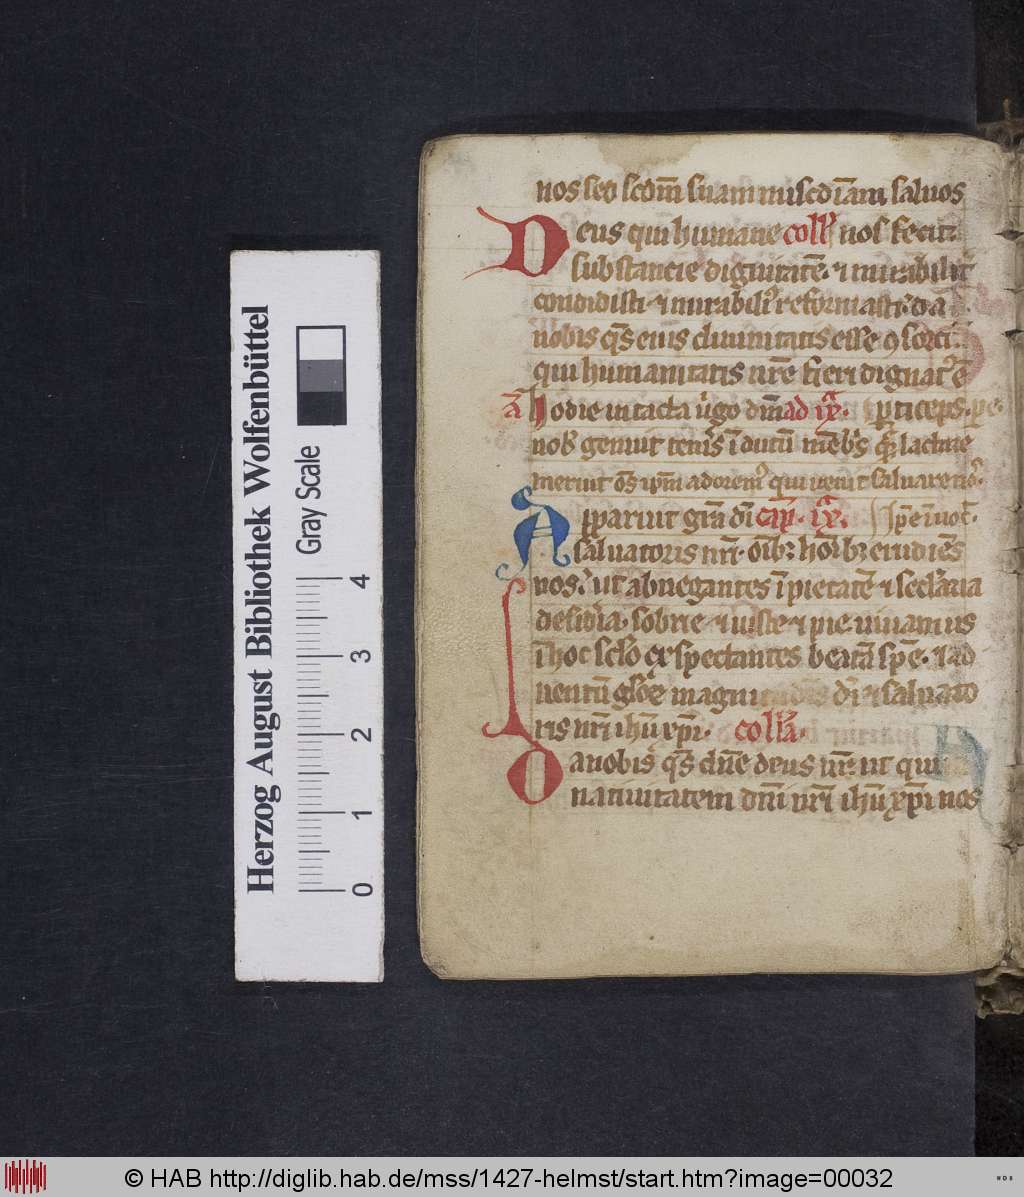 nos sed scdm̄ suam miscdiam saluos
Deus qui humane coll' nos fecit
substancie dignitatē ⁊ mirabilit̾
condidisti ⁊ mirabili' reformasti da
nobis q̄s eius diuinitatis esse ꝯsorti
qui humanitatis nr̄e fieri dignat' ē
ā hodie intacta uirgo dm̄ ad ix. particeps. p.
nob' genuit teneris īdutū mēbris q̄ lactare
meruit oēs ip̄m adorem' qui uenit saluare nos.
Apparuit grā dī cap. ix. Ipe inuot.
saluatoris nrī. oīb; hoīb; erudiēs
nos. ut abnegantes īpietatē ⁊ seclaria
desidia. sobrie ⁊ iuste ⁊ pie uiuamus
ī hoc sclo exspectantes beatā spē. ⁊ ad
uentū glorie magni dī ⁊ saluato
ris nrī ihū xpī. collā.
Da nobis q̄s dn̄e deus nr̄ ut qui
natiuitatem dnī nrī ihū xpī nos
Herzog August Bibliothek Wolfenbüttel
Gray Scale
0 1 2 3 4
© HAB http://diglib.hab.de/mss/1427-helmst/start.htm?image=00032